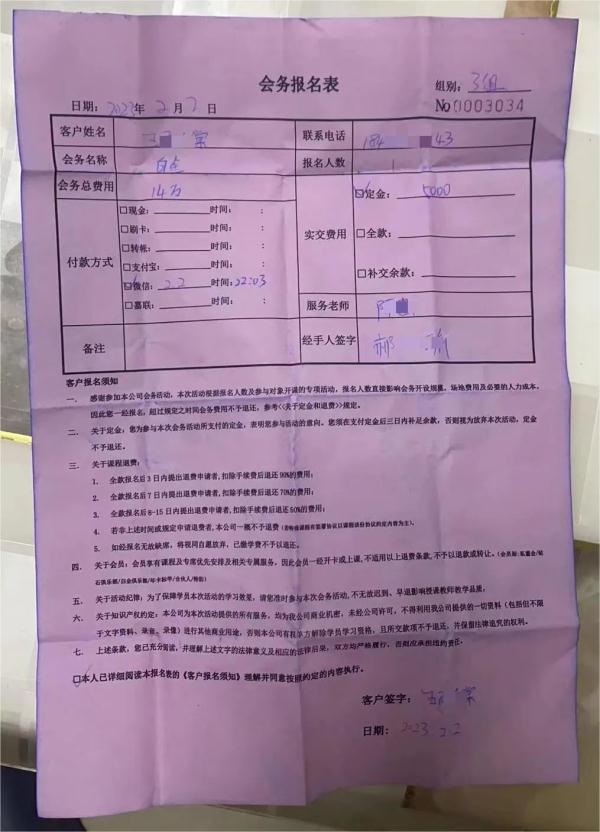 会务报名表
组别：3组
日期：2023年 2月 2日
No 0003034
客户姓名
联系电话 184 43
会务名称 白金
报名人数 1
会务总费用 14万
付款方式
□现金： 时间： ：
□刷卡： 时间： ：
□转帐： 时间： ：
□支付宝： 时间： ：
☑微信：2.2 时间：22:03
□嘉联： 时间： ：
实交费用
☑定金：5000
□全款：
□补交余款：
服务老师
备注
经手人签字 郝
客户报名须知
一、 感谢参加本公司会务活动，本次活动根据报名人数及参与对象开课的专项活动，报名人数直接影响会务开设规模，场地费用及必要的人力成本，
因此您一经报名，超过规定之时间会务费用不予退还，参考<<关于定金和退费>>规定。
二、 关于定金：您为参与本次会务活动所支付的定金，表明您参与活动的意向。您须在支付定金后三日内补足余款，否则视为放弃本次活动，定金
不予退还。
三、 关于课程退费：
1. 全款报名后3日内提出退费申请者，扣除手续费后退还90%的费用；
2. 全款报名后7日内提出退费申请者，扣除手续费后退还70%的费用；
3. 全款报名后8-15日内提出退费申请者，扣除手续费后退还50%的费用；
4. 若非上述时间或规定申请退费者，本公司一概不予退费
5. 如经报名无故缺席，将视同自愿放弃，已缴学费不予以退还。
四、 关于会员：会员享有课程及专席优先安排及相关专属服务，因此会员一经开卡或上课，不适用以上退费条款，不予以退款或转让。
五、 关于活动纪律：为了保障学员本次活动的学习效果，请您准时参与本次会务活动，不无故迟到、早退影响授课教师教学品质；
六、 关于知识产权约定：本公司为本次活动提供的所有服务，均为我公司商业机密，未经公司许可，不得利用我公司提供的一切资料（包括但不限
于文字资料、录音、录像）进行其他商业用途，否则本公司有权单方解除学员学习资格，且所交款项不予退还，并保留法律追究的权利。
七、 上述条款，您已充分阅读，并理解上述文字的法律意义及相应的法律后果，双方均严格履行，否则应承担违约责任。
□本人已详细阅读本报名表的《客户报名须知》理解并同意按照约定的内容执行。
客户签字：
日期：2023.2.2